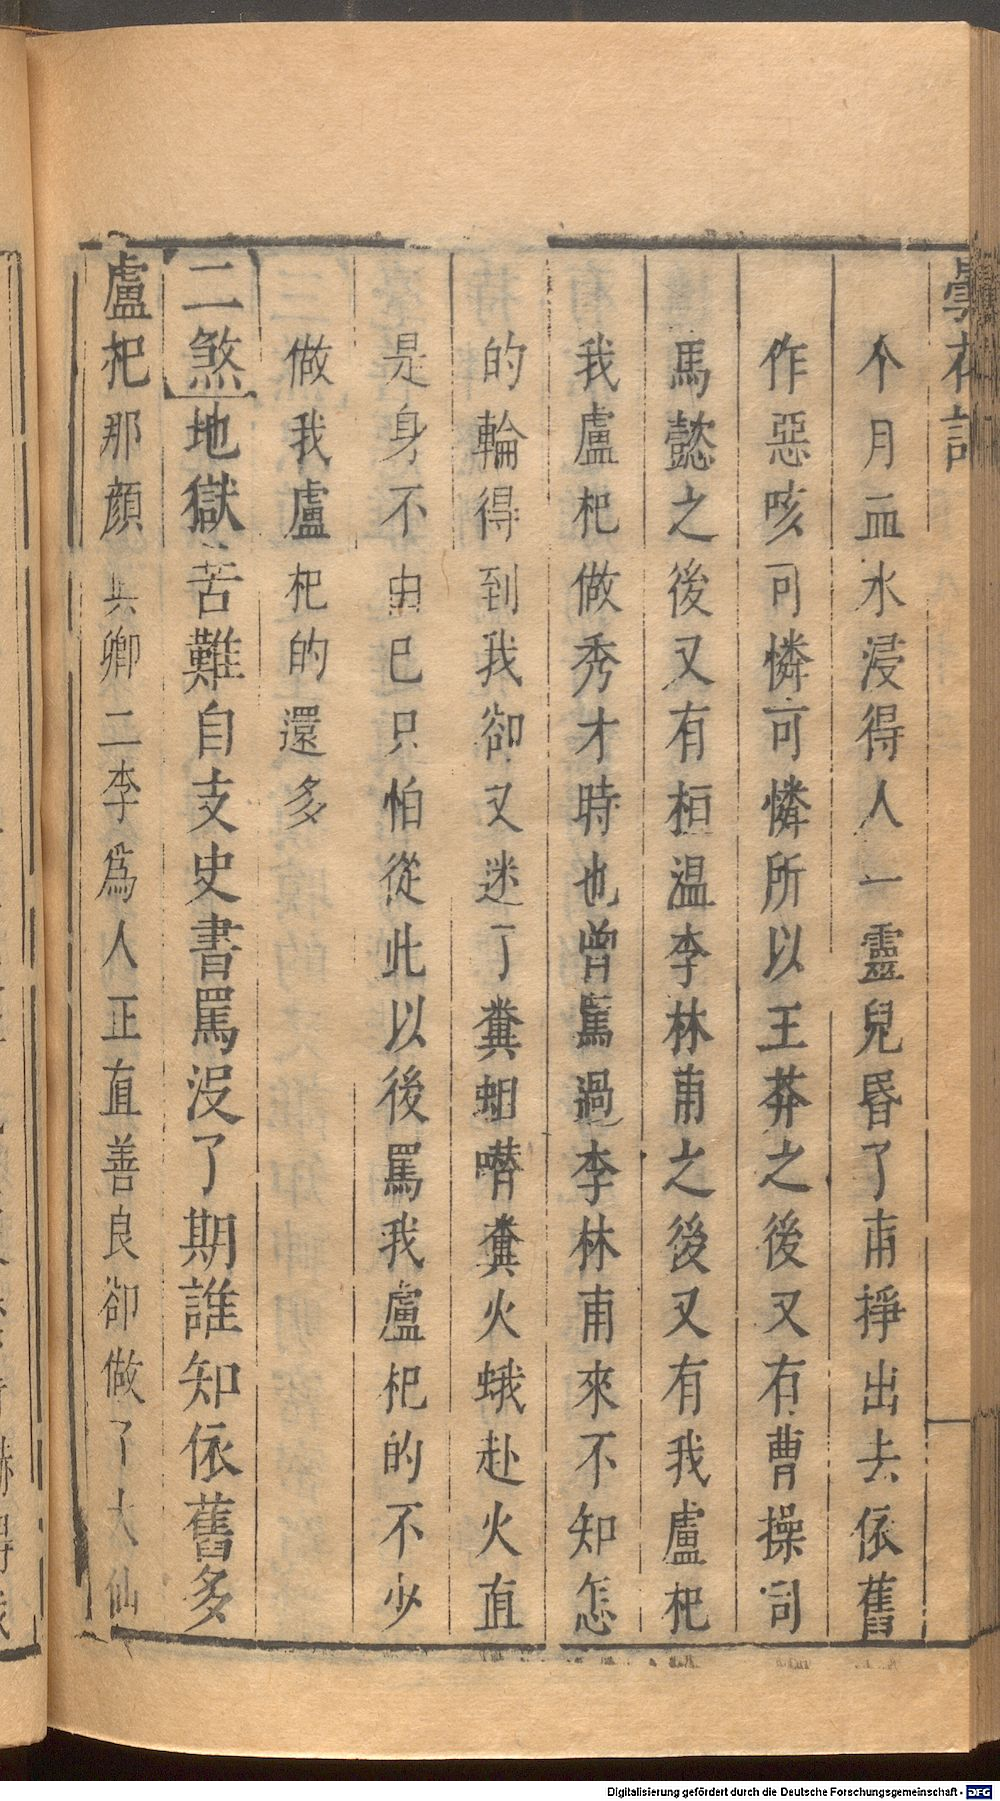 个月血水浸得人一靈兒昏了甫掙出去依舊
作惡咳可憐可憐所以王莽之後又有曹操司
馬懿之後又有桓温李林甫之後又有我盧杞
我盧杞做秀才時也曾罵過李林甫來不知怎
的輪得到我卻又迷了糞蛆嘈糞火蛾赴火直
是身不由已只怕從此以後罵我盧杞的不少
做我盧杞的還多
二煞地獄苦難自支史書罵没了期誰知依舊多
盧杞那顔真卿二李爲人正直善良卻做了大仙
Digitalisierung gefördert durch die Deutsche Forschungsgemeinschaft - DFG